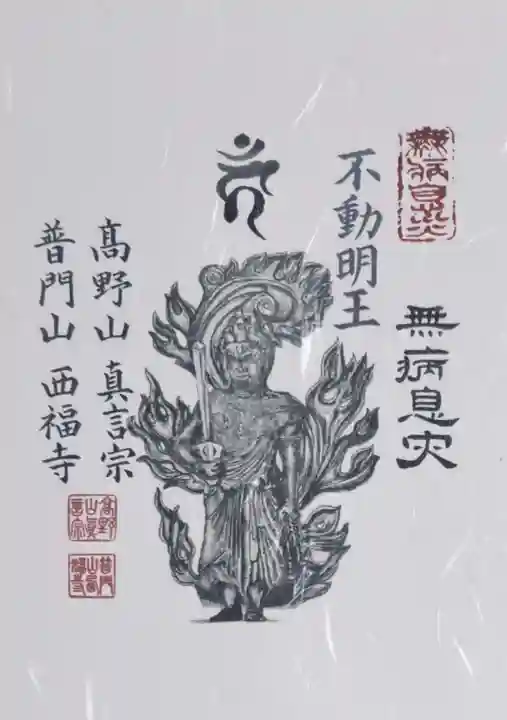 無病息災
無病息災
不動明王
高野山 真言宗
普門山 西福寺
高野
山真
言宗
普門
山西
福寺